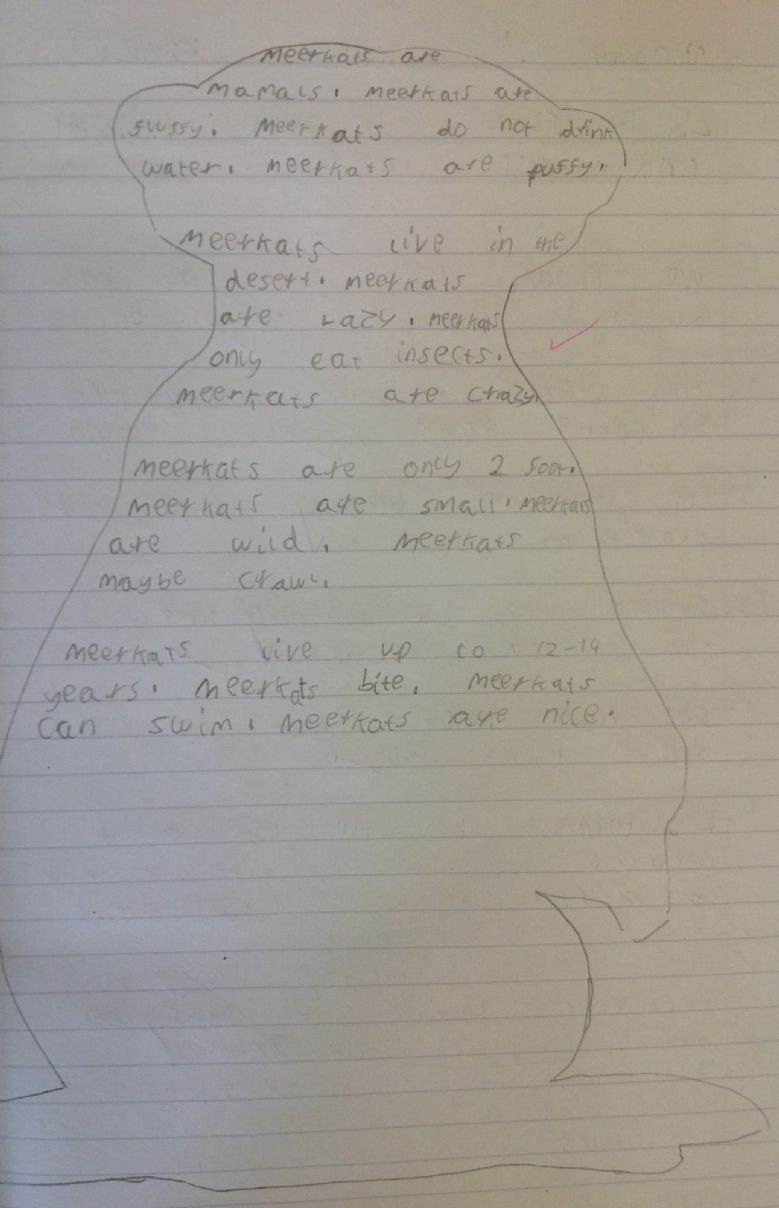 meerkats are
mamals. meerkats are
fluffy. Meerkats do not drink
water. meerkats are puffy.
meerkats live in the
desert. meerkats
are Lazy. meerkats
only eat insects.
meerkats are crazy.
meerkats are only 2 foot.
meerkats are small. meerkats
are wild. meerkats
maybe crawl.
meerkats live up to 12-14
years. meerkats bite. meerkats
can swim. meerkats are nice.